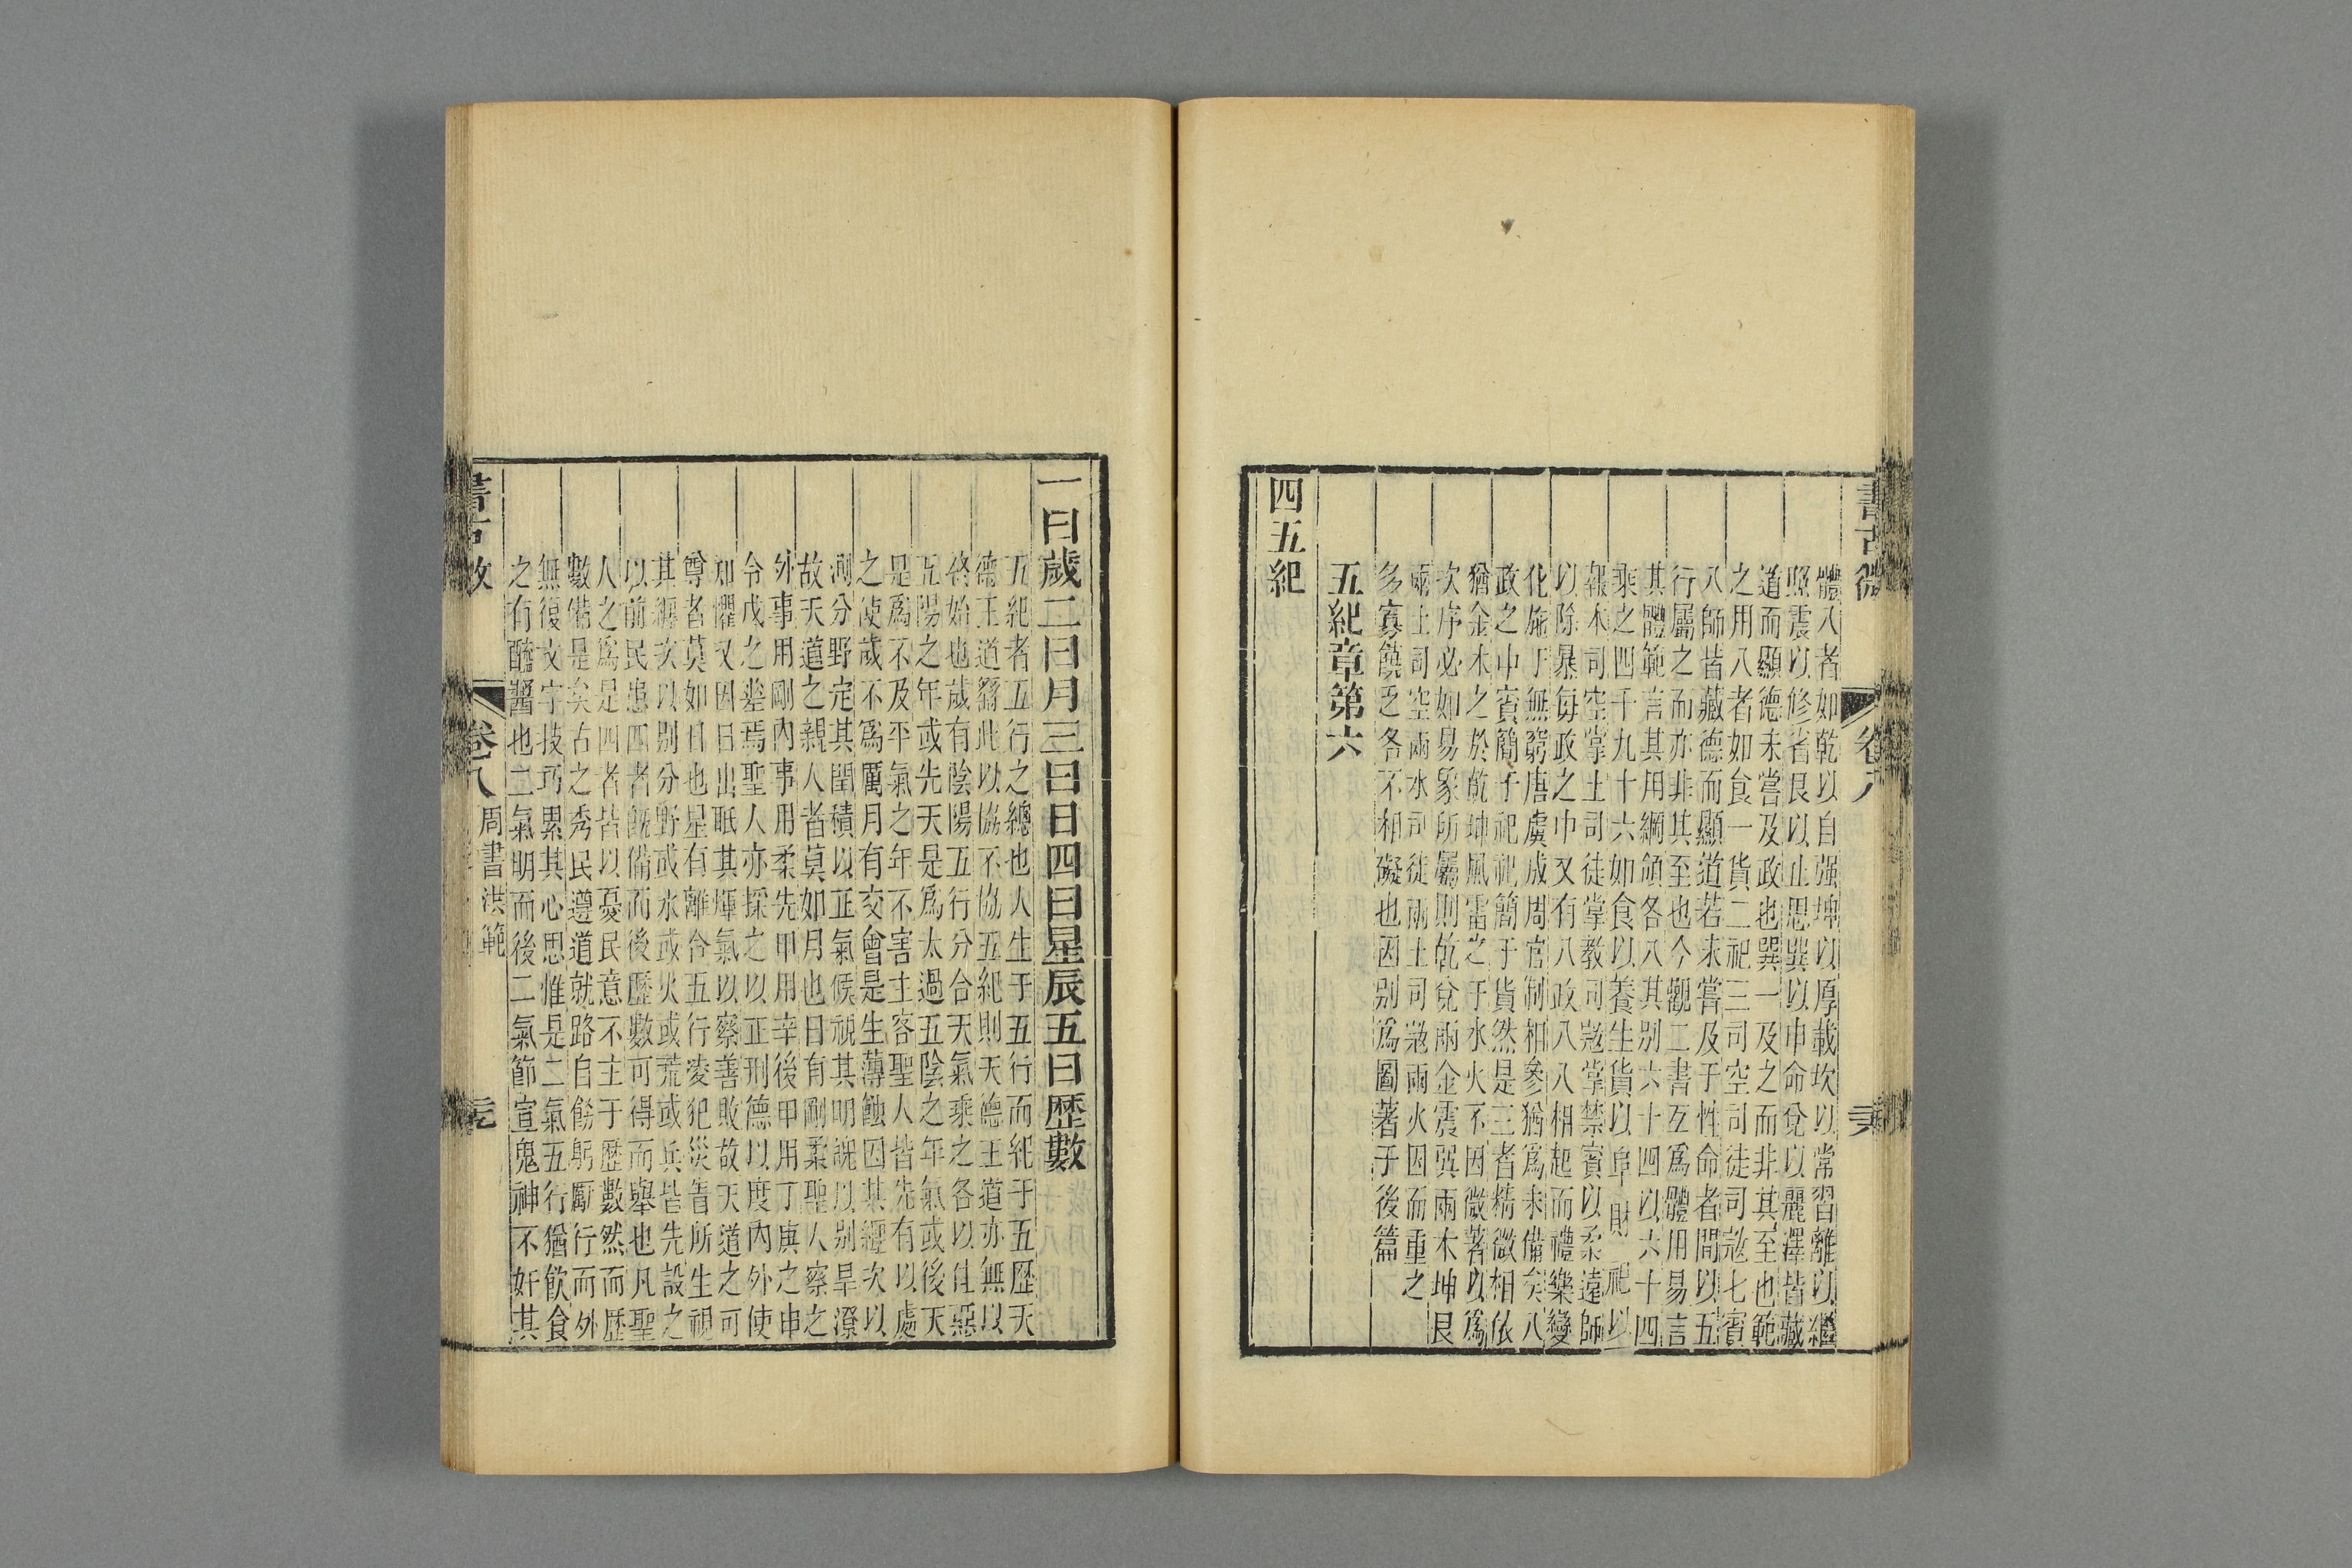 書古微
卷八
體八者如乾以自强坤以厚載坎以常習離以繼
照震以修省艮以止思巽以申命兌以麗澤皆藏
道而顯德未嘗及政也巽一及之而非其至也範
之用八者如食一貨二祀三司空司徒司寇七賓
八師皆藏德而顯道若未嘗及于性命者間以五
行屬之而亦非其至也今觀二書互爲體用易言
其體範言其用綱領各八其别六十四以六十四
乘之四千九十六如食以養生貨以阜財祀以
報本司空掌土司徒掌教司寇掌禁賓以柔遠師
以除暴每政之中又有八政八八相起而禮樂變
化施于無窮唐虞成周官制相參猶爲未備矣八
政之中賓簡于祀祀簡于貨然是三者精微相依
猶金木之於乾坤風雷之于水火不因微著以爲
次序必如易象所屬則乾兌兩金震巽兩木坤艮
兩土司空兩水司徒兩土司寇兩火因而重之
多寡饒乏各不相礙也因别爲圖著于後篇
五紀章第六
四五紀
一曰歲二曰月三曰日四曰星辰五曰歷數
五紀者五行之總也人生于五行而紀于五歷天
德王道繇此以協不協五紀則天德王道亦無以
終始也歲有陰陽五行分合天氣乘之各以佳惡
五陽之年或先天是爲太過五陰之年氣或後天
是爲不及平氣之年不害主客聖人皆先有以處
之使歲不爲厲月有交會是生薄蝕因其纏次以
測分野定其閏積以正氣候視其明魄以别旱潦
故天道之親人者莫如月也日有剛柔聖人察之
外事用剛內事用柔先甲用辛後甲用丁庚之申
令戊之差焉聖人亦採之以正刑德以度內外使
知懼又因日出眂其煇氣以察善敗故天道之可
尊者莫如日也星有離合五行凌犯災眚所生視
其纏次以别分野或水或火或荒或兵皆先設之
以前民患四者旣備而後歷數可得而舉也凡聖
人之爲是四者皆以憂民意不主于歷數然而歷
數備是矣古之秀民遵道就路自餘躬厲行而外
無復文字技巧累其心思惟是二氣五行猶飲食
之有醯醬也二氣明而後二氣節宣鬼神不奸其
卷八
周書洪範